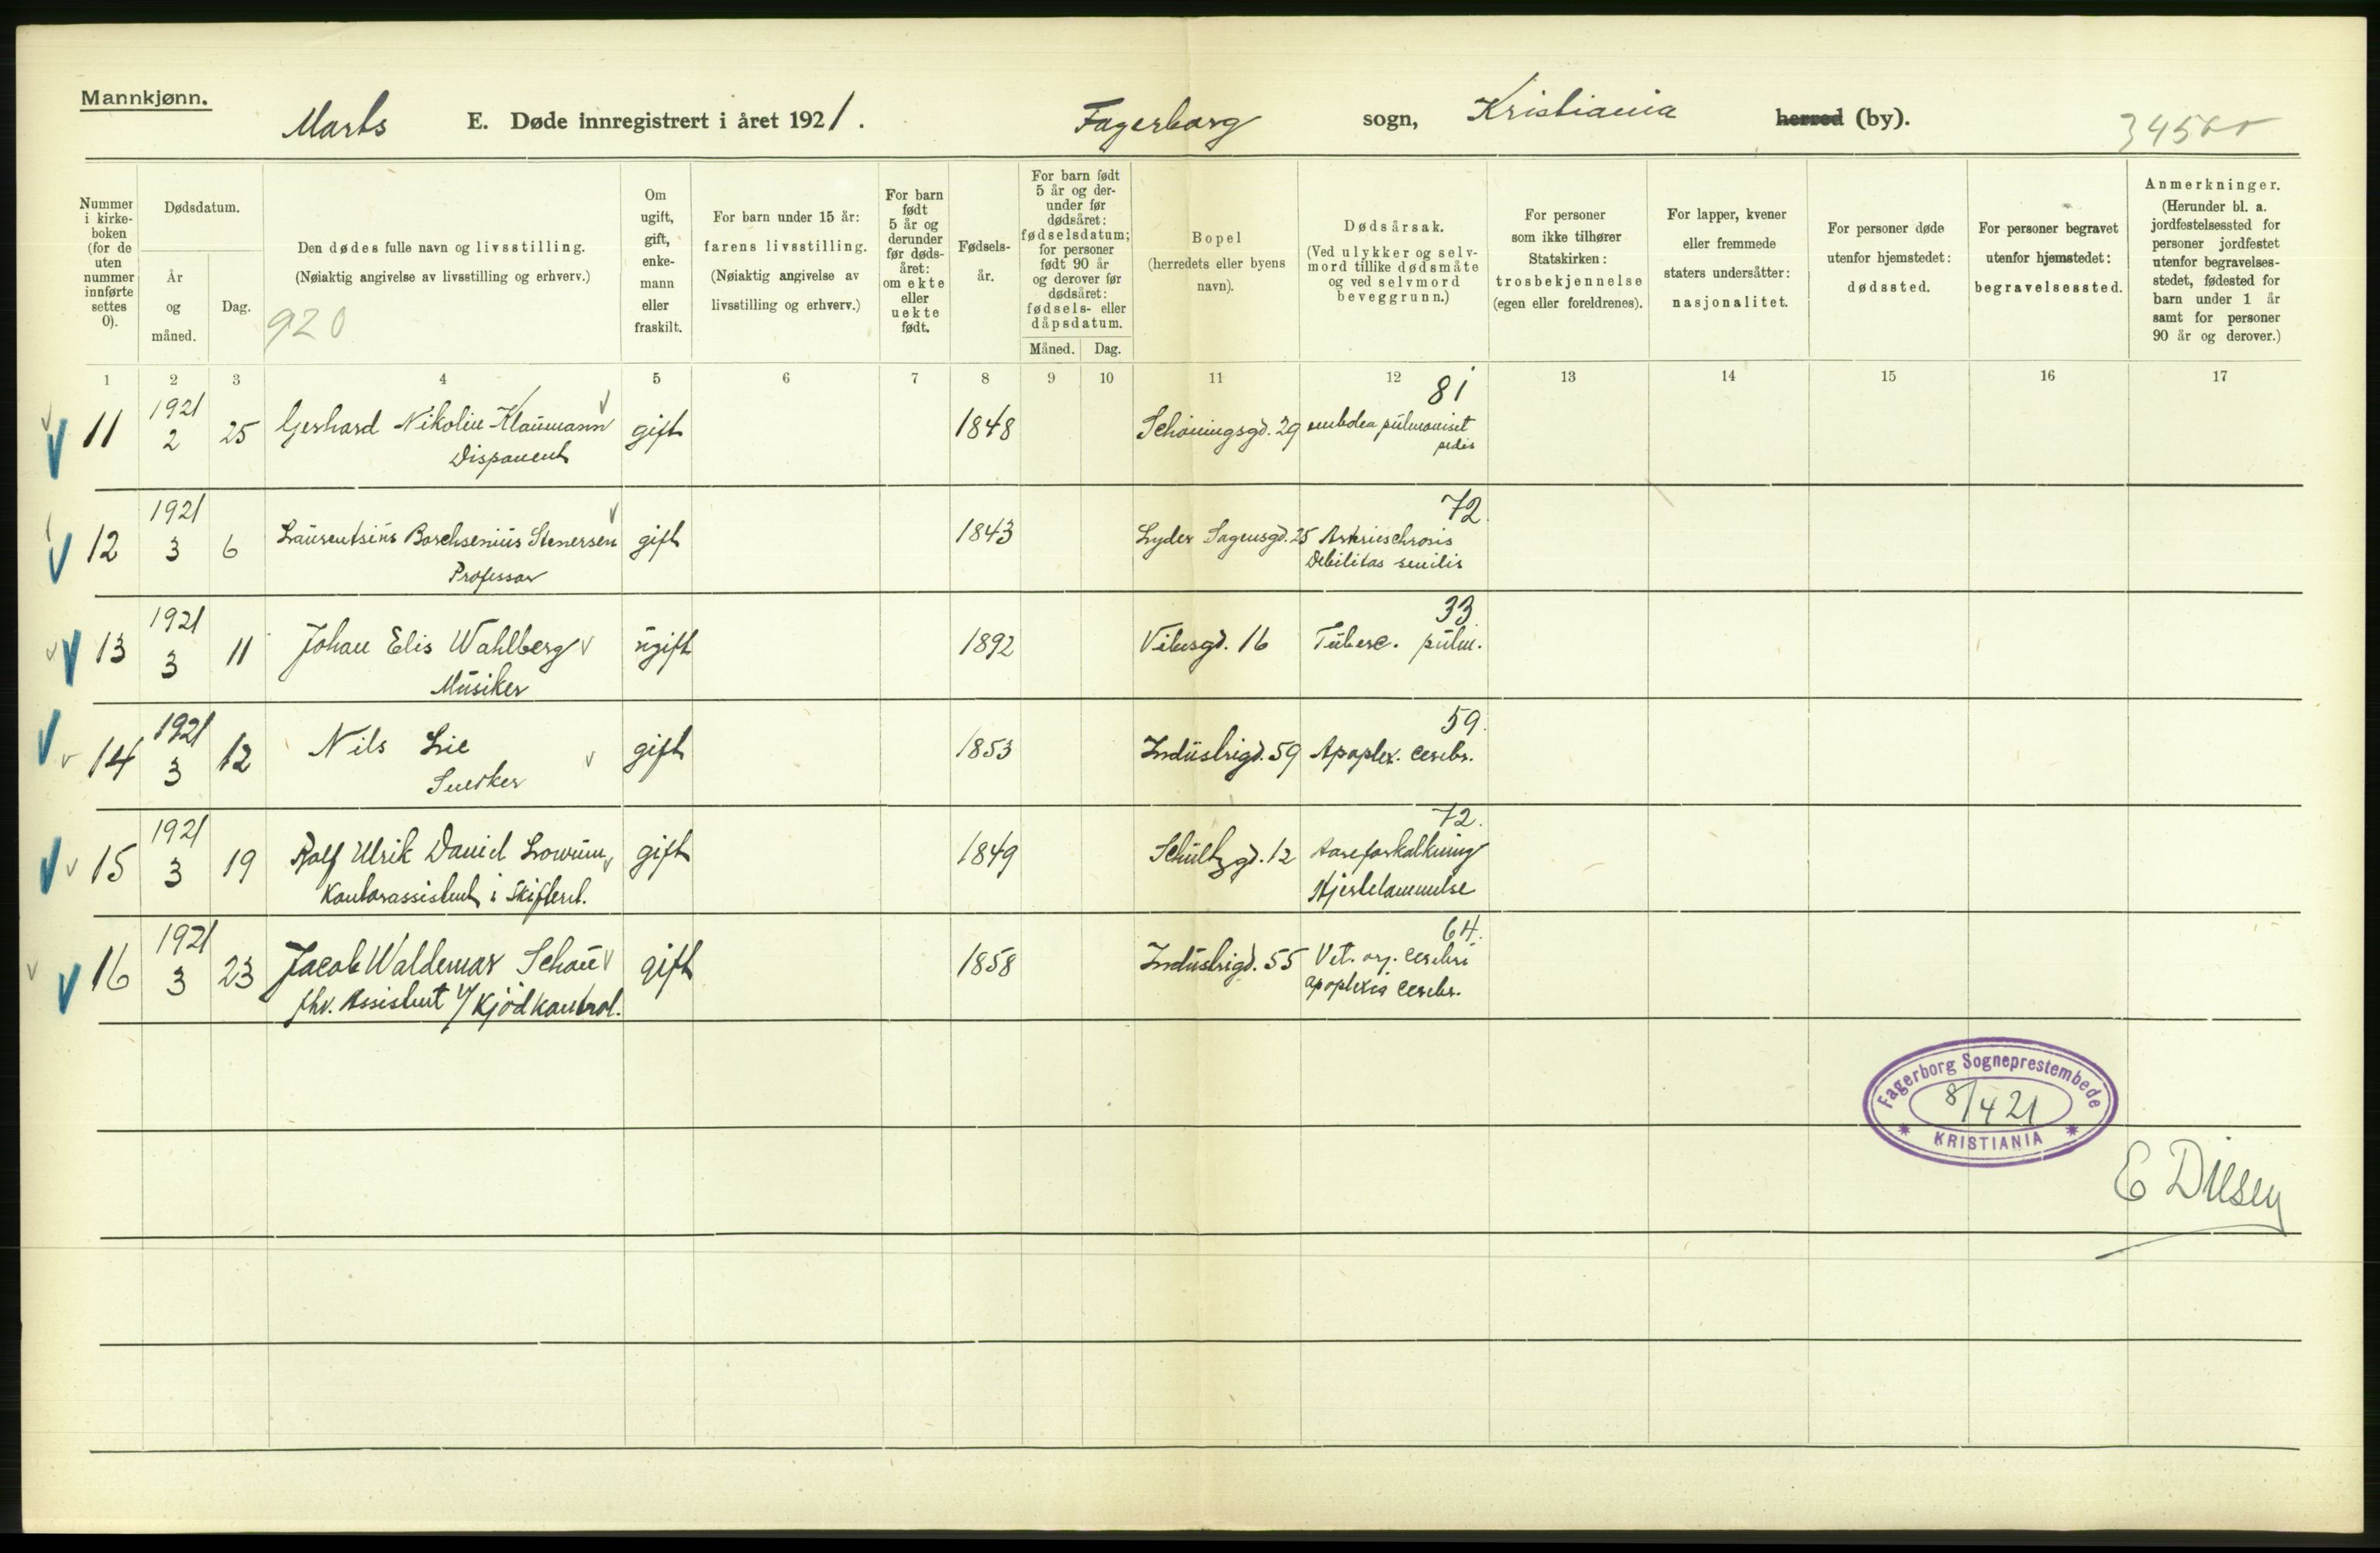 Mannkjønn.
Marts E. Døde innregistrert i året 1921. Fagerborg sogn, Kristiania herred (by).
Nummer i kirke-boken (for de uten nummer innførte settes 0).
Dødsdatum.
År og måned.
Dag.
Den dødes fulle navn og livsstilling.
(Nøiaktig angivelse av livsstilling og erhverv.)
920
Om ugift, gift, enke-mann eller fraskilt.
For barn under 15 år:
farens livsstilling.
(Nøiaktig angivelse av livsstilling og erhverv.)
For barn født 5 år og derunder før døds-året: om ekte eller uekte født.
Fødsels-år.
For barn født 5 år og der-under før dødsåret: fødselsdatum; for personer født 90 år og derover før dødsåret: fødsels- eller dåpsdatum.
Måned. Dag.
Bopel
(herredets eller byens navn).
Dødsårsak.
(Ved ulykker og selv-mord tillike dødsmåte og ved selvmord beveggrunn.)
For personer som ikke tilhører Statskirken:
trosbekjennelse
(egen eller foreldrenes).
For lapper, kvener eller fremmede staters undersåtter:
nasjonalitet.
For personer døde utenfor hjemstedet:
dødssted.
For personer begravet utenfor hjemstedet:
begravelsessted.
Anmerkninger.
(Herunder bl. a. jordfestelsessted for personer jordfestet utenfor begravelses-stedet, fødested for barn under 1 år samt for personer 90 år og derover.)
1 2 3 4 5 6 7 8 9 10 11 12 13 14 15 16 17
81
11 1921 2 25 Gerhard Nikolin Klaumann gift 1848 Schøningsgd. 29
Disponent
72.
12 1921 3 6 Laurentsius Borchsenius Stenersen gift 1843 Lyder Sagensgd. 25
Professor Debilitas senilis
33
13 1921 3 11 Johan Elis Wahlberg ugift 1892 Vibesgd. 16 Tuberc. pulm.
Musiker
59.
14 1921 3 12 Nils Lie gift 1853 Industrigd. 59 Apoplex. cerebr.
Snedker
72.
15 1921 3 19 Rolf Ulrik Daniel gift 1849 Schultzgd. 12 Aareforkalkning
Kontorassistent i Skifteret. Hjertelammelse
64.
16 1921 3 23 Jacob Waldemar Schou gift 1858 Industrigd. 55 Vit. org. cerebri
fhv. Assistent v/ Kjødkontrol. apoplexia cerebr.
Fagerborg Sogneprestembede
8/4 21
KRISTIANIA